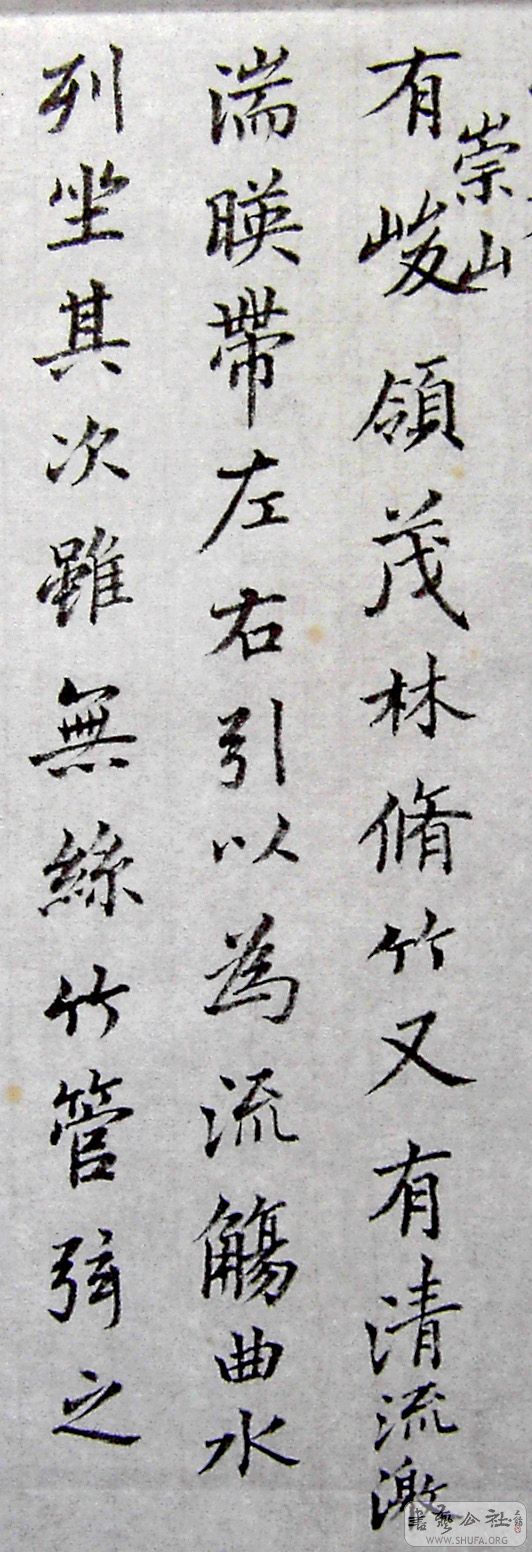 有崇山峻領茂林脩竹又有清流激
湍暎帶左右引以為流觴曲水
列坐其次雖無絲竹管弦之
書藝公社
WWW.SHUFA.ORG